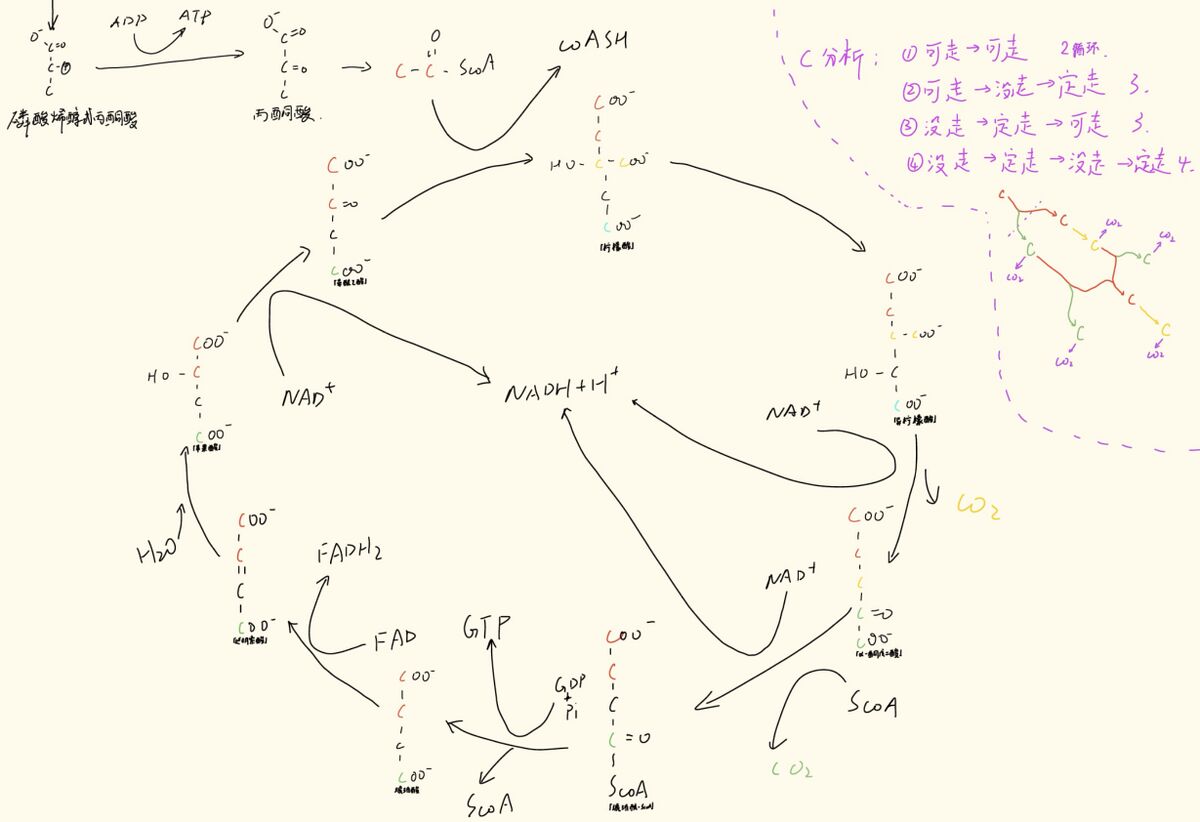 ADP ATP
O⁻ C=O
C-Ⓟ
C
磷酸烯醇式丙酮酸
O⁻ C=O
C=O
C
丙酮酸.
O
C-C-ScoA
coASH
C分析: ①可走→可走 2循环.
②可走→没走→定走 3.
③没走→定走→可走 3.
④没走→定走→没走→定走 4.
C
C
C
CO₂
CO₂
C
C
CO₂
C
C
CO₂
C
CO₂
COO⁻
C
HO-C-COO⁻
C
COO⁻
「柠檬酸」
COO⁻
C=O
C
COO⁻
「草酰乙酸」
COO⁻
C
C-COO⁻
HO-C
COO⁻
「异柠檬酸」
COO⁻
HO-C
C
COO⁻
「苹果酸」
NAD⁺
NADH+H⁺
NAD⁺
CO₂
COO⁻
C
C
C=O
COO⁻
「α-酮戊二酸」
NAD⁺
ScoA
CO₂
H₂O
COO⁻
C
C
COO⁻
「延胡索酸」
FADH₂
FAD
GTP
GDP
+
Pi
COO⁻
C
C
C=O
ScoA
「琥珀酰-ScoA」
COO⁻
C
C
COO⁻
琥珀酸
ScoA